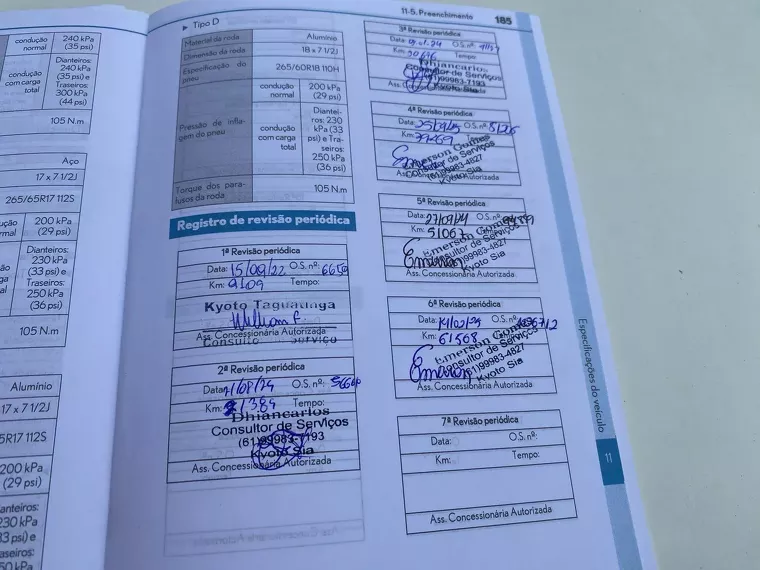 condução normal
240 kPa
(35 psi)
condução com carga total
Dianteiros:
240 kPa
(35 psi) e
Traseiros:
300 kPa
(44 psi)
105 N.m
Aço
17 x 7 1/2J
265/65R17 112S
200 kPa
(29 psi)
Dianteiros:
230 kPa
(33 psi) e
Traseiros:
250 kPa
(36 psi)
105 N.m
Alumínio
17 x 7 1/2J
200 kPa
(29 psi)
230 kPa
11-5. Preenchimento
185
▶ Tipo D
Material da roda
Alumínio
Dimensão da roda
18 x 7 1/2J
Especificação do pneu
265/60R18 110H
Pressão de inflagem do pneu
condução normal
200 kPa
(29 psi)
condução com carga total
Dianteiros: 230
kPa (33
psi) e Traseiros:
250 kPa
(36 psi)
Torque dos parafusos da roda
105 N.m
Registro de revisão periódica
1ª Revisão periódica
Data: 15/09/22 O.S. nº:
Km: 9109 Tempo:
Kyoto Taguatinga
William F.
Ass. Concessionária Autorizada
2ª Revisão periódica
Data: O.S. nº:
Km: Tempo:
Dhiancarlos
Consultor de Serviços
(61)99983-7193
Kyoto Sia
Ass. Concessionária Autorizada
3ª Revisão periódica
Data: O.S. nº:
Km: Tempo:
Dhiancarlos
Consultor de Serviços
(61)99983-7193
Kyoto Sia
4ª Revisão periódica
Data: O.S. nº:
Km:
Emerson Gomes
Consultor de Serviços
(61)99983-4827
Kyoto Sia
Ass. Concessionária Autorizada
5ª Revisão periódica
Data: O.S. nº:
Km: 51067
Emerson Gomes
Consultor de Serviços
(61)99983-4827
Kyoto Sia
Ass. Concessionária Autorizada
6ª Revisão periódica
Data: O.S. nº:
Km: 61568
Emerson Gomes
Consultor de Serviços
(61)99983-4827
Kyoto Sia
Ass. Concessionária Autorizada
7ª Revisão periódica
Data: O.S. nº:
Km: Tempo:
Ass. Concessionária Autorizada
Especificações do veículo
11